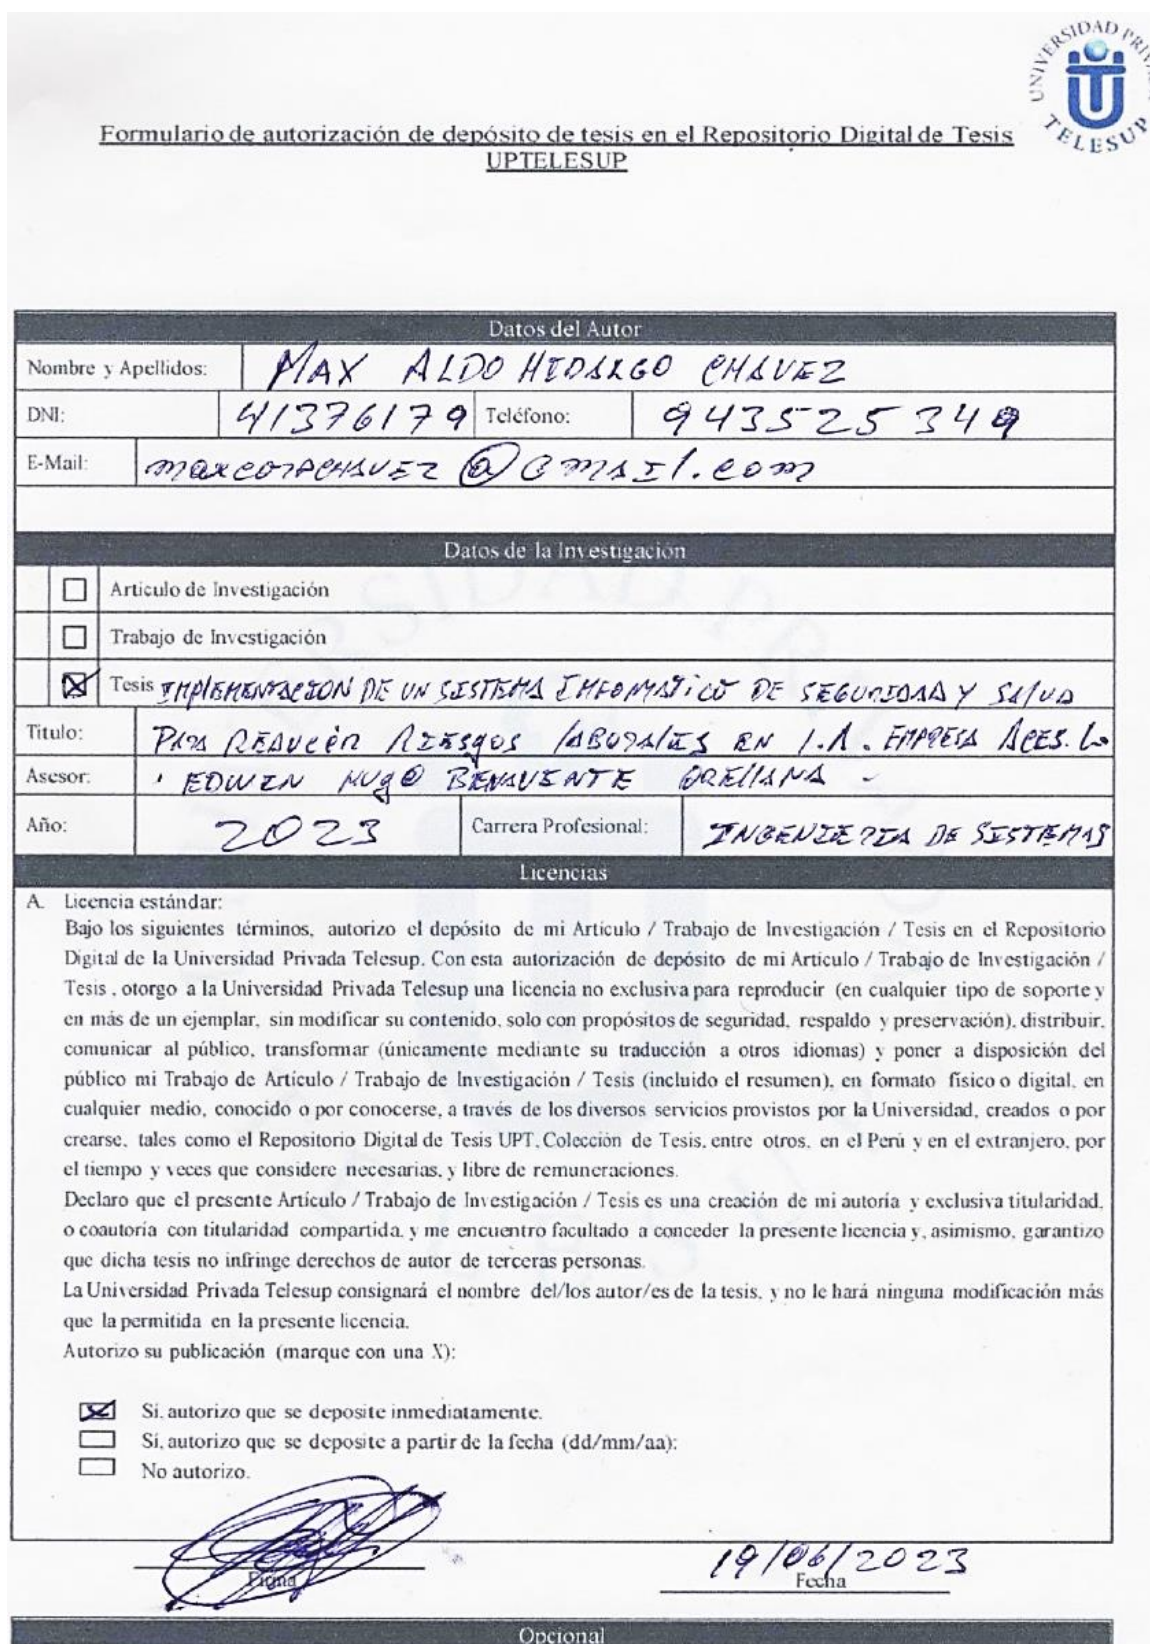 UNIVERSIDAD
TELESUP
Formulario de autorización de depósito de tesis en el Repositorio Digital de Tesis
UPTELESUP
Datos del Autor
Nombre y Apellidos: MAX ALDO HIDALGO CHAVEZ
DNI: 41376179 Teléfono: 943525349
E-Mail: @GMAIL.com
Datos de la Investigación
Articulo de Investigación
Trabajo de Investigación
Tesis IMPLEMENTACION DE UN SISTEMA INFOMATICO DE SEGURIDAD Y SALUD
Titulo: PARA REDUCIR RIESGOS LABORALES EN EMPRESA
Asesor: EDWIN HUGO BENAVENTE ORELLANA -
Año: 2023 Carrera Profesional: INGENIERIA DE SISTEMAS
Licencias
A. Licencia estándar:
Bajo los siguientes términos, autorizo el depósito de mi Articulo / Trabajo de Investigación / Tesis en el Repositorio
Digital de la Universidad Privada Telesup. Con esta autorización de depósito de mi Articulo / Trabajo de Investigación /
Tesis , otorgo a la Universidad Privada Telesup una licencia no exclusiva para reproducir (en cualquier tipo de soporte y
en más de un ejemplar, sin modificar su contenido, solo con propósitos de seguridad, respaldo y preservación), distribuir,
comunicar al público, transformar (únicamente mediante su traducción a otros idiomas) y poner a disposición del
público mi Trabajo de Artículo / Trabajo de Investigación / Tesis (incluido el resumen), en formato físico o digital, en
cualquier medio, conocido o por conocerse, a través de los diversos servicios provistos por la Universidad, creados o por
crearse, tales como el Repositorio Digital de Tesis UPT, Colección de Tesis, entre otros, en el Perú y en el extranjero, por
el tiempo y veces que considere necesarias, y libre de remuneraciones.
Declaro que el presente Artículo / Trabajo de Investigación / Tesis es una creación de mi autoría y exclusiva titularidad,
o coautoría con titularidad compartida, y me encuentro facultado a conceder la presente licencia y, asimismo, garantizo
que dicha tesis no infringe derechos de autor de terceras personas.
La Universidad Privada Telesup consignará el nombre del/los autor/es de la tesis, y no le hará ninguna modificación más
que la permitida en la presente licencia.
Autorizo su publicación (marque con una X):
Sí, autorizo que se deposite inmediatamente.
Sí, autorizo que se deposite a partir de la fecha (dd/mm/aa):
No autorizo.
19/06/2023
Firma Fecha
Opcional